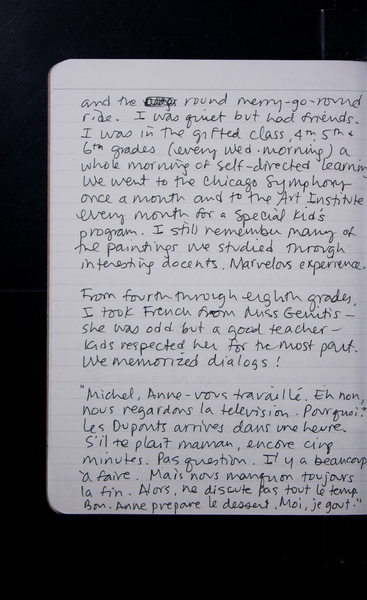 and the round merry-go-round
ride. I was quiet but had friends.
I was in the gifted class, 4th, 5th &
6th grades (every Wed. morning) a
whole morning of self-directed learning
We went to the Chicago Symphony
once a month and to the Art Institute
every month for a special kid's
program. I still remember many of
the paintings we studied through
interesting docents. Marvelous experience.
From fourth through eighth grades,
I took French from Miss Genitis –
she was odd but a good teacher –
kids respected her for the most part.
We memorized dialogs!
"Michel, Anne-vous travaillé. Eh non,
nous regardons la television. Pourquoi?
Les Duponts arrives dans une heure.
S'il te plait maman, encore cinq
minutes. Pas question. Il y a beaucoup
à faire. Mais nous manquon toujours
la fin. Alors, ne discute pas tout le temp.
Bon. Anne prepare le dessert. Moi, je gout."